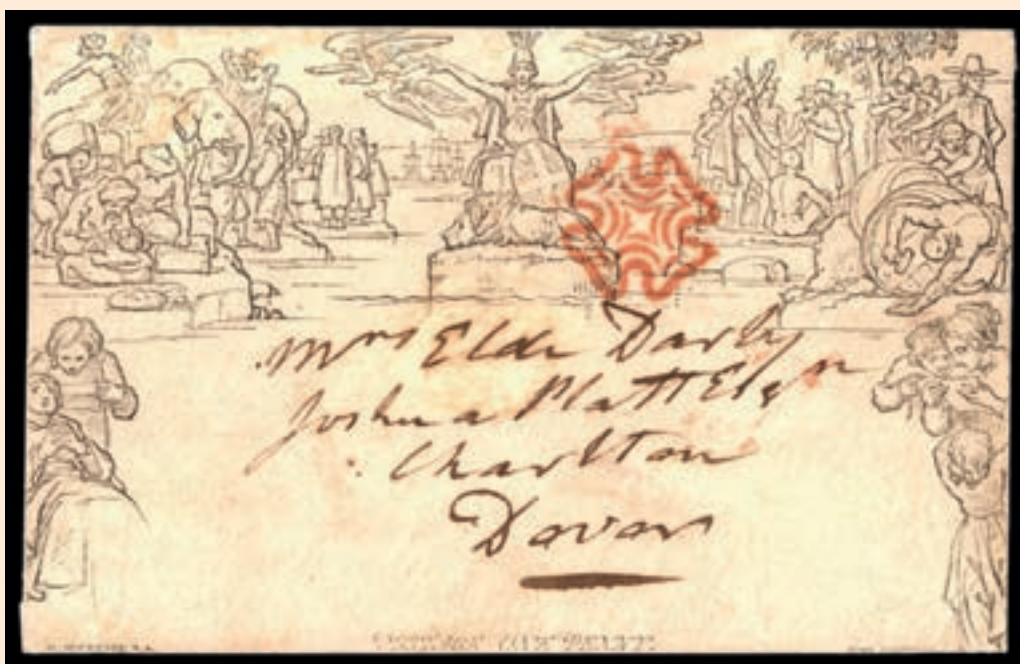 Mrs Elde Darby
Joshua Platt Esqr
Charlton
Dover